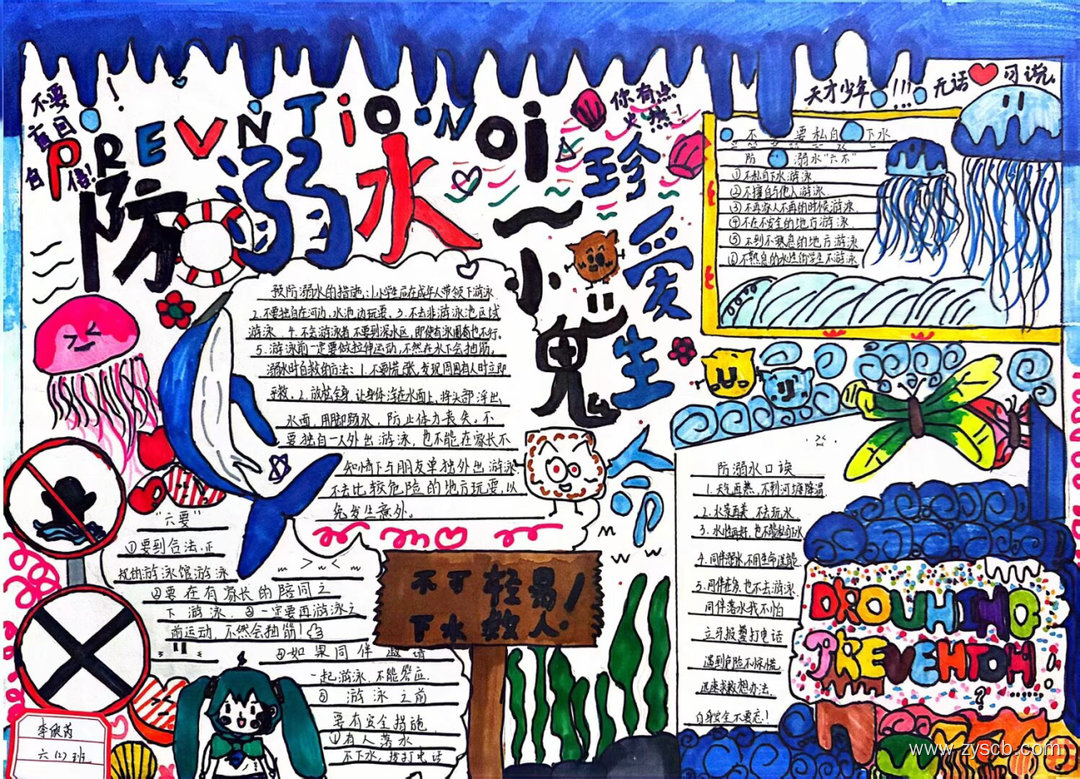 不要
盲目
自信！
PREVNTION
防溺水
oi
一小鬼
你有点
火燃！！
珍爱生命
天才少年!!!
无话可说。
不要私自下水
防溺水"六不"
①不私自下水游泳
②不擅自与他人游泳
③不再家人不再的时候游泳
④不在不安全的地方游泳
⑤不到不熟悉的地方游泳
⑥不熟悉的水性的学生不游泳
预防溺水的措施:1.小学生应在成年人带领下游泳
2.不要独自在河边、水池边玩耍、3.不去非游泳池区域
游泳、4.不会游泳者不要到深水区,即使有水围着也不行。
5.游泳前一定要做拉伸运动,不然在水下会抽筋,
溺水时自救的方法:1.不要慌张,发现周围有人时立即
呼救,2.放松全身,让身体浮在水面上,将头部浮出
水面,用脚踢水,防止体力丧失,不
要独自一人外出游泳,也不能在家长不
知情下与朋友单独外出游泳
不去比较危险的地方玩耍,以
免发生意外。
"六要"
①要到合法、正
规的游泳馆游泳
②要在有家长的陪同之
下游泳、③一定要再游泳之
前运动,不然会抽筋!
④如果同伴邀请
一起游泳,不能答应
⑤游泳之前
要有安全措施
①有人落水
不下水,拨打电话
不可轻易!
下水救人.
防溺水口诀
1.天气再热,不到河塘降温
2.水草再美,不去玩水
3.水性再好,也不能私访水
4.同伴落水,不用生命逞能
5.同伴在旁,也不去游泳
同伴落水我不怕
立马报警打电话
遇到危险不惊慌
迅速求救想办法
自身安全不要忘!
DROUHING
PREVEHTOH
李
六(2)班
www.zyscb.com